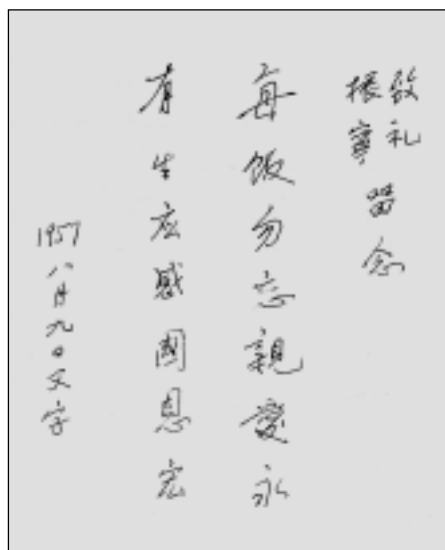 致礼
振寧 留念
每饭勿忘親愛永
有生应感國恩宏
1957八月九日父字